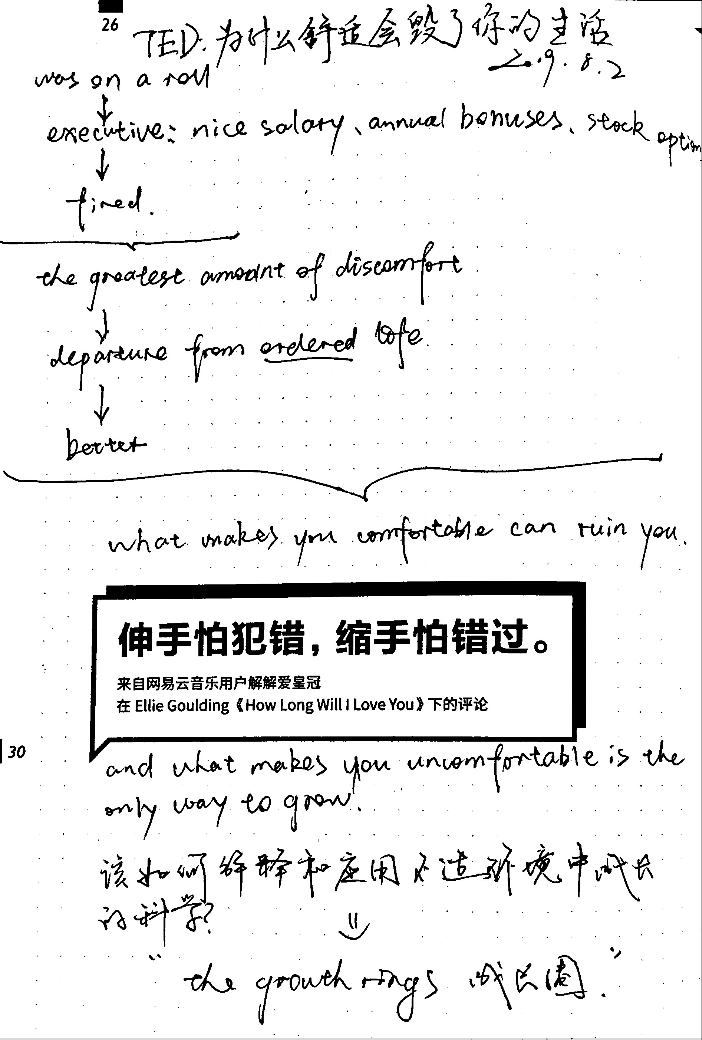 26
TED.为什么舒适会毁了你的生活
2019.8.2
was on a roll
executive: nice salary、annual bonuses、stock option
fired.
the greatest amount of discomfort
departure from ordered life
better
what makes you comfortable can ruin you.
伸手怕犯错，缩手怕错过。
来自网易云音乐用户解解爱皇冠
在 Ellie Goulding《How Long Will I Love You》下的评论
30
and what makes you uncomfortable is the
only way to grow.
该如何解释和应用不适环境中成长
的科学?
"the growth rings 成长圈."